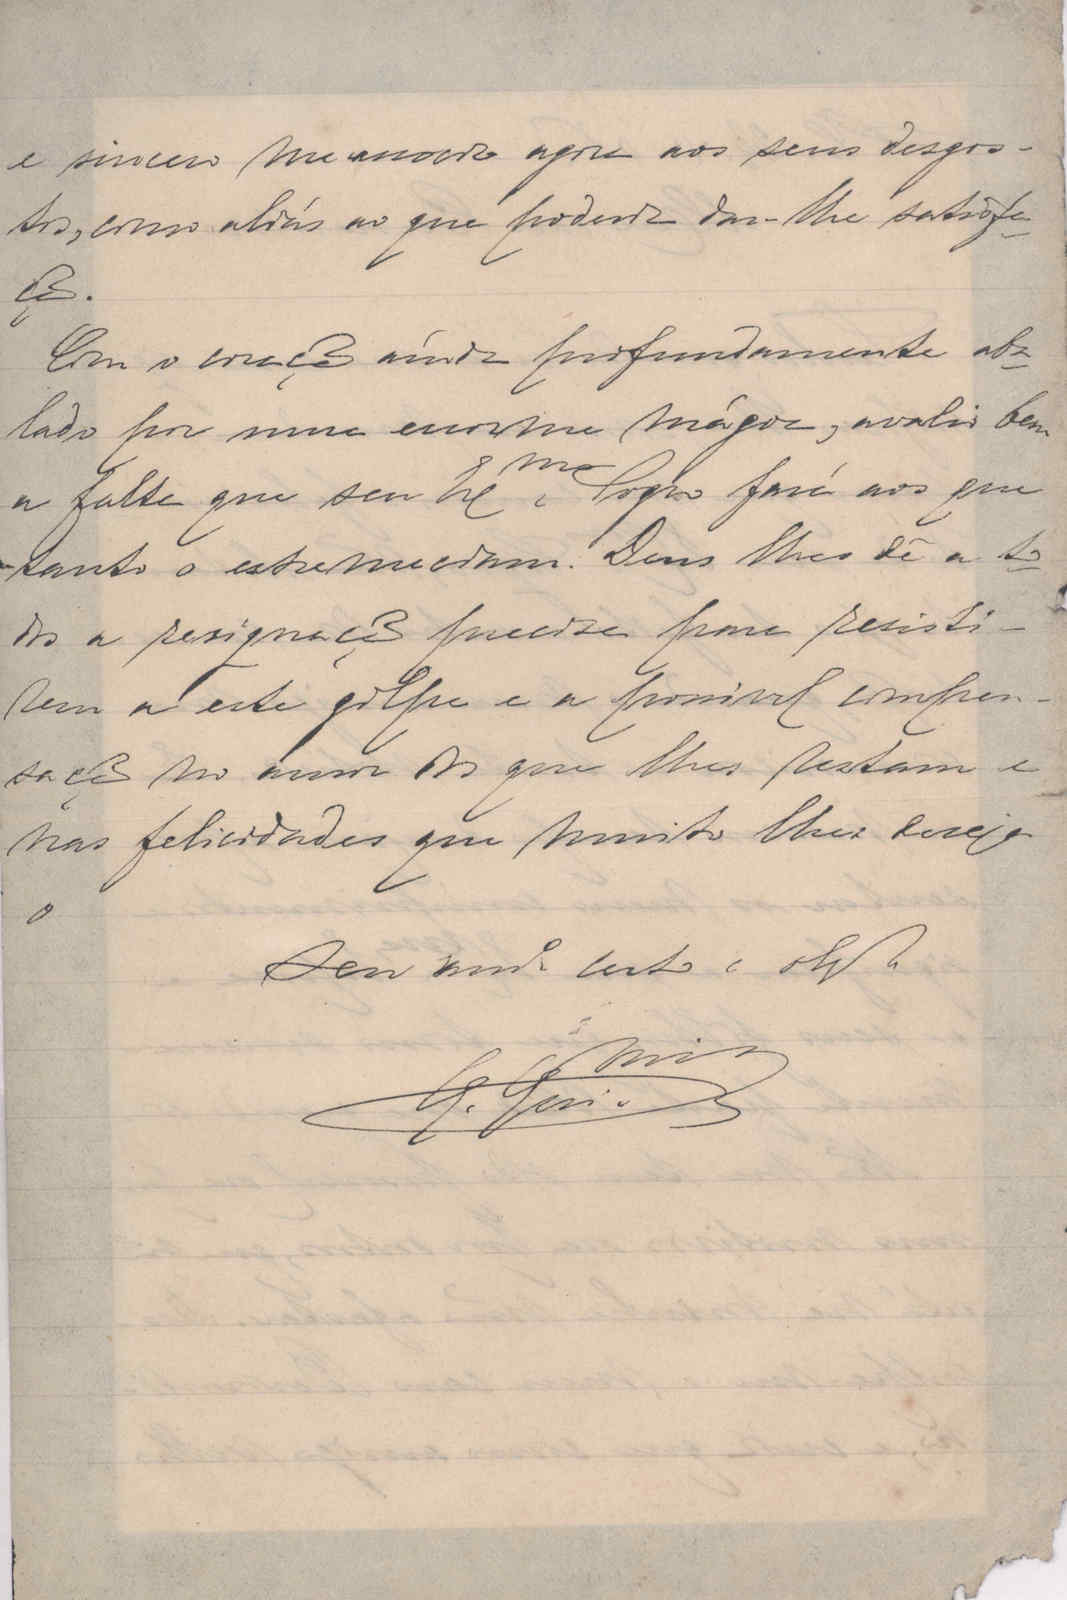 e sincero me associo agora aos seus desgos-
tos, como aliás ao que poderia dar-lhe satisfa-
ção.
Com o coração ainda profundamente aba-
lado por uma enorme mágoa, avalio bem
a falta que seu Ex.mo Sogro fará aos que
tanto o estremeciam. Deus lhes dê a to-
dos a resignação precisa para resisti-
rem a este golpe e a possivel compen-
sação no amor dos que lhes restam e
nas felicidades que muito lhes deseja
o
Seu am.º certo e obg.
G.